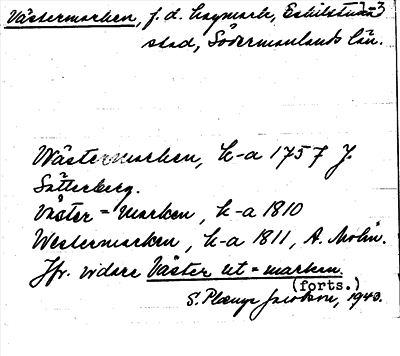 Västermarken, f. d. hagmark, Eskilstuna 1-3
stad, Södermanlands län.
Wästermarken, k-a 1757 J.
Sätterberg.
Väster=Marken, k-a 1810
Westermarken, k-a 1811, A. Molin.
Jfr. vidare Väster ut=marken.
(forts.)
S. Plænge Jacobson, 1943.